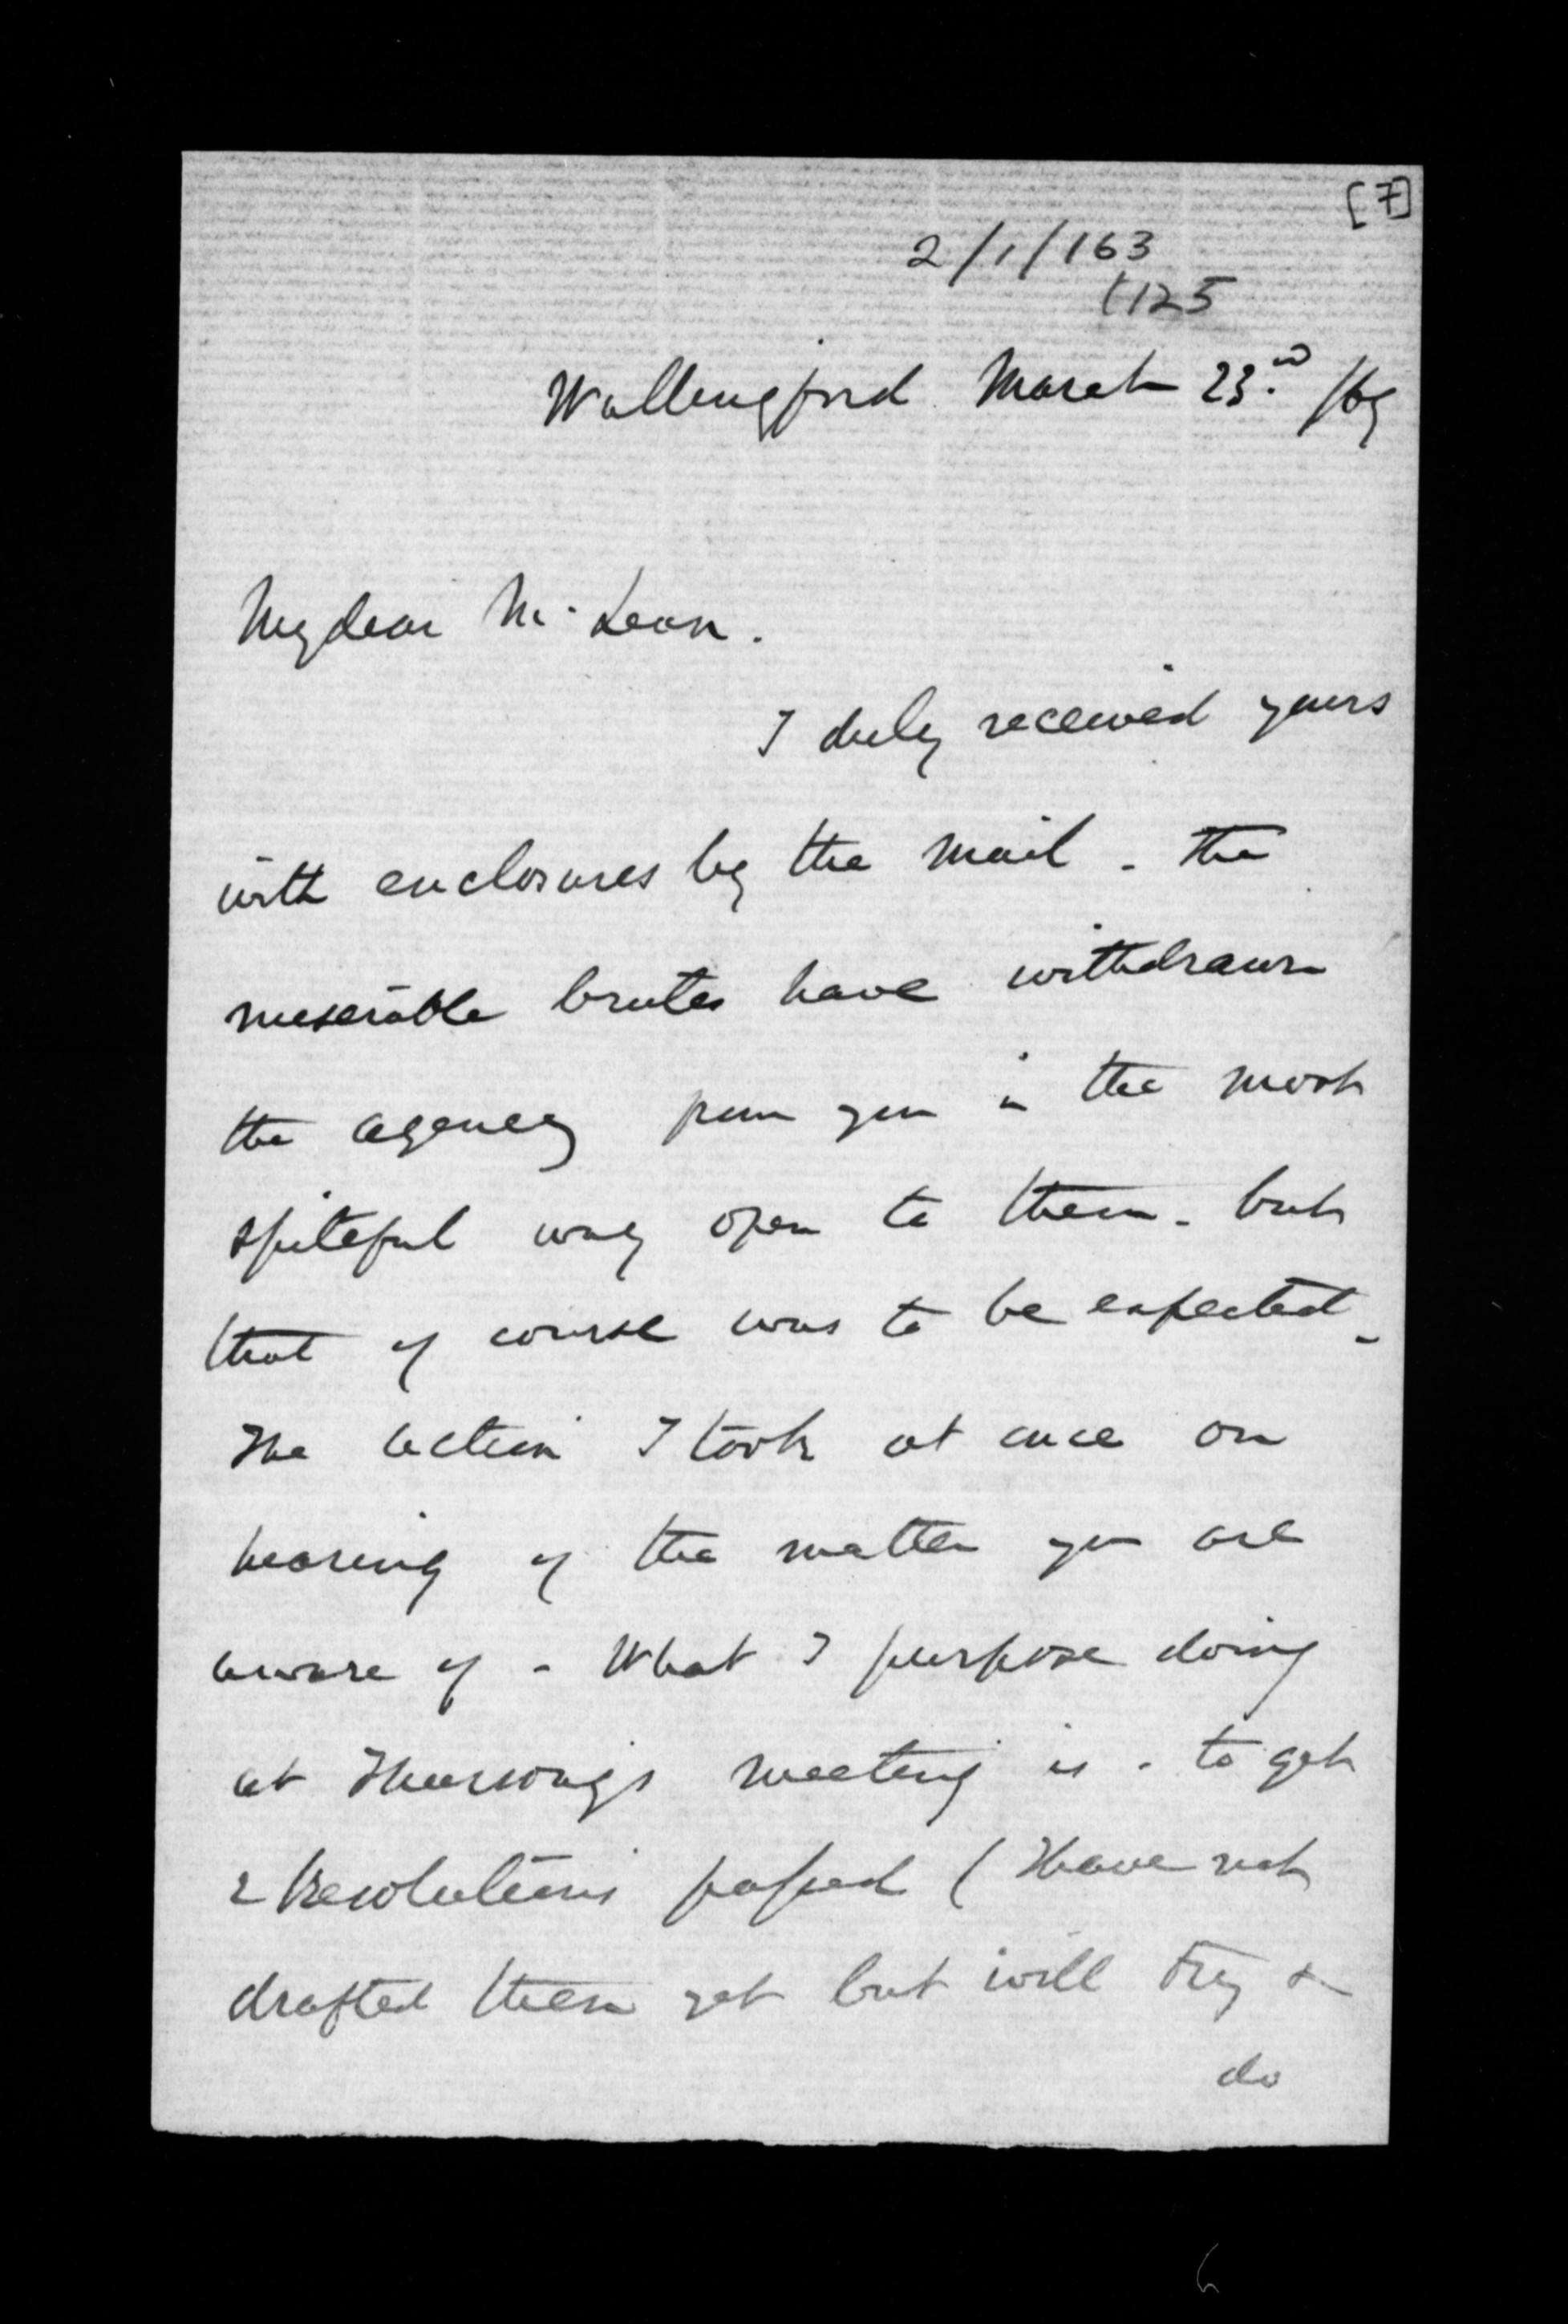 [7]
2/1/163
(125
Wallingford March 23rd /69
My dear McLean.
I duly received yours
with enclosures by the mail - the
miserable brutes have withdrawn
the agency from you in the most
spiteful way open to them - but
that of course was to be expected -
The action I took at once on
hearing of the matter you are
aware of - What I purpose doing
at Thursday's meeting is - to get
2 Resolutions passed ( I have not
drafted them yet but will try &
do